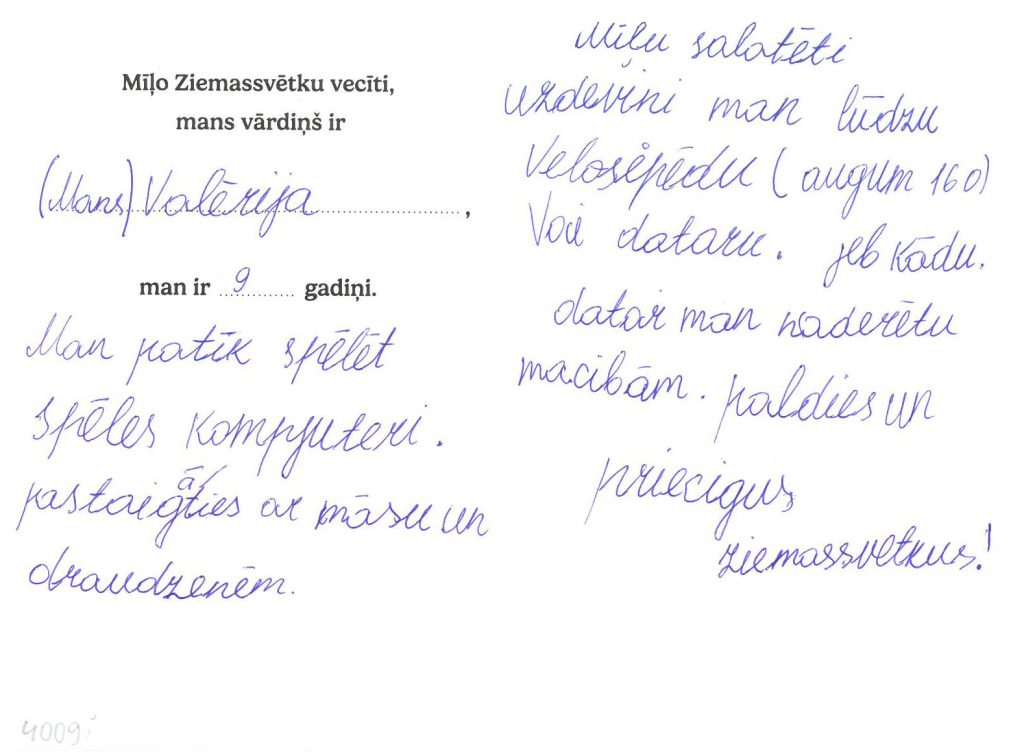 Mīļo Ziemassvētku vecīti,
mans vārdiņš ir
(Mans) Valērija,
man ir 9 gadiņi.
Man patīk spēlēt
spēles kompjuteri.
pastaigāties ar māsu un
draudzenēm.
4009i
Miļu salatēti
uzdevini man lūdzu
Velosēpēdu (augum 160)
Voi dataru. jeb kādu.
datar man naderētu
macibām. paldies un
priecigus
ziemassvetkus!